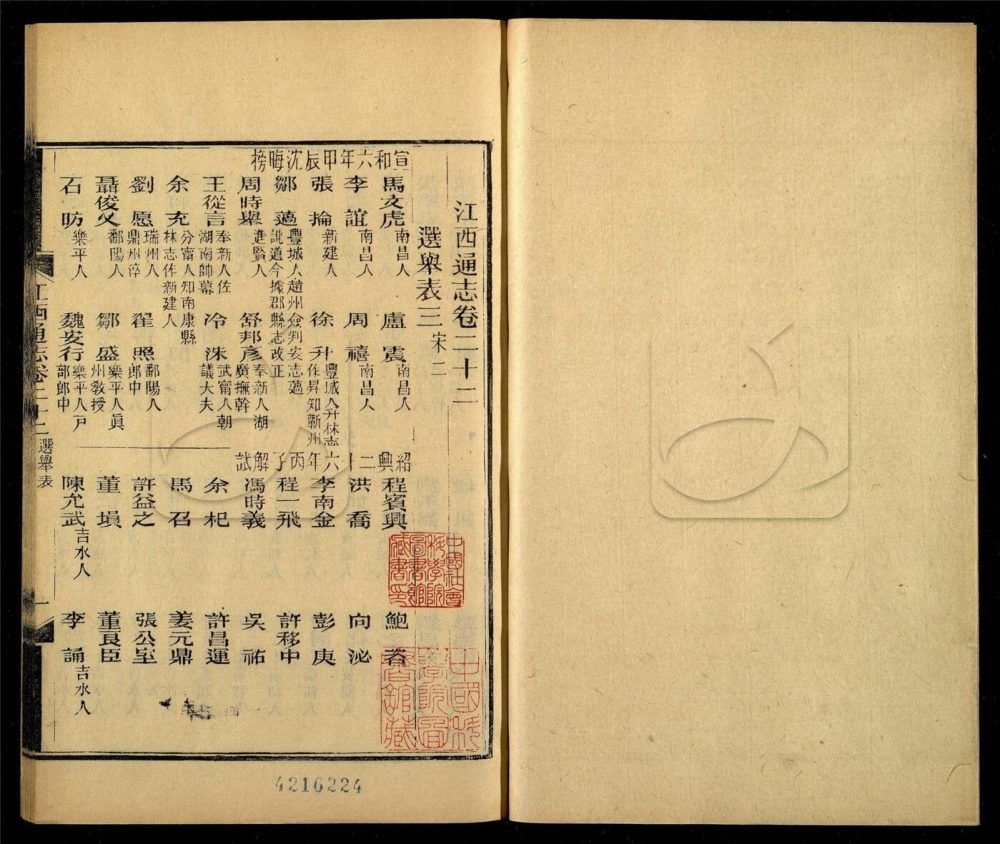 江西通志卷二十二
選舉表三 宋二
宣和六年甲辰沈晦榜
馬文虎 南昌人 盧震 南昌人
李誼 南昌人 周禧 南昌人
張掄 新建人 徐升 豐城人升林志作昇知蘄州
鄒邁 豐城人趙州僉判安志邁訛道今據郡縣志改正
周時舉 進賢人 舒邦彥 奉新人湖廣撫幹
王從言 奉新人佐湖南帥幕 冷洙 武甯人朝議大夫
余充 分甯人知南康縣林志作新建人
劉愿 瑞州人鼎州倅 翟照 鄱陽人郎中
聶俊乂 鄱陽人 鄒盛 樂平人眞州敎授
石昉 樂平人 魏安行 樂平人戸部郎中
紹興二十六年丙子解試
程賓興 鮑
洪喬 向泌
李南金 彭庚
程一飛 許移中
馮時義 吳祐
余杞 許昌運
馬召 姜元鼎
許益之 張公室
董塤 董良臣
陳允武 吉水人 李誦 吉水人
江西通志卷二十二 選舉表 一
中國社會科學院圖書館藏書印
中國科學院圖書館藏
4216224